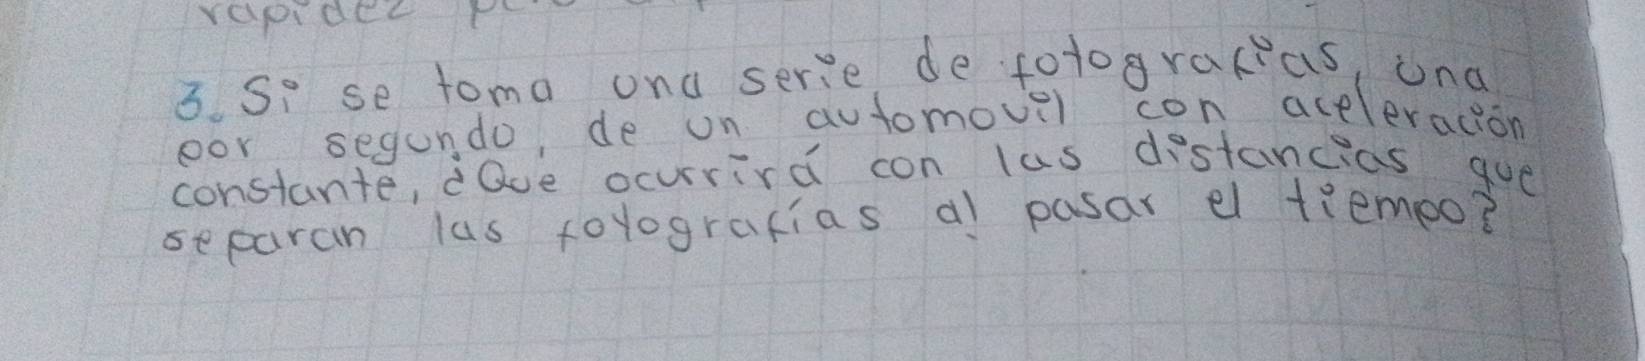 rapidez
3. Si se toma una serie de fotografias, una
por segundo, de un automovil con aceleración
constante, ¿Que ocurrirá con las distancias que
separan las fotografías al pasar el tiempo?